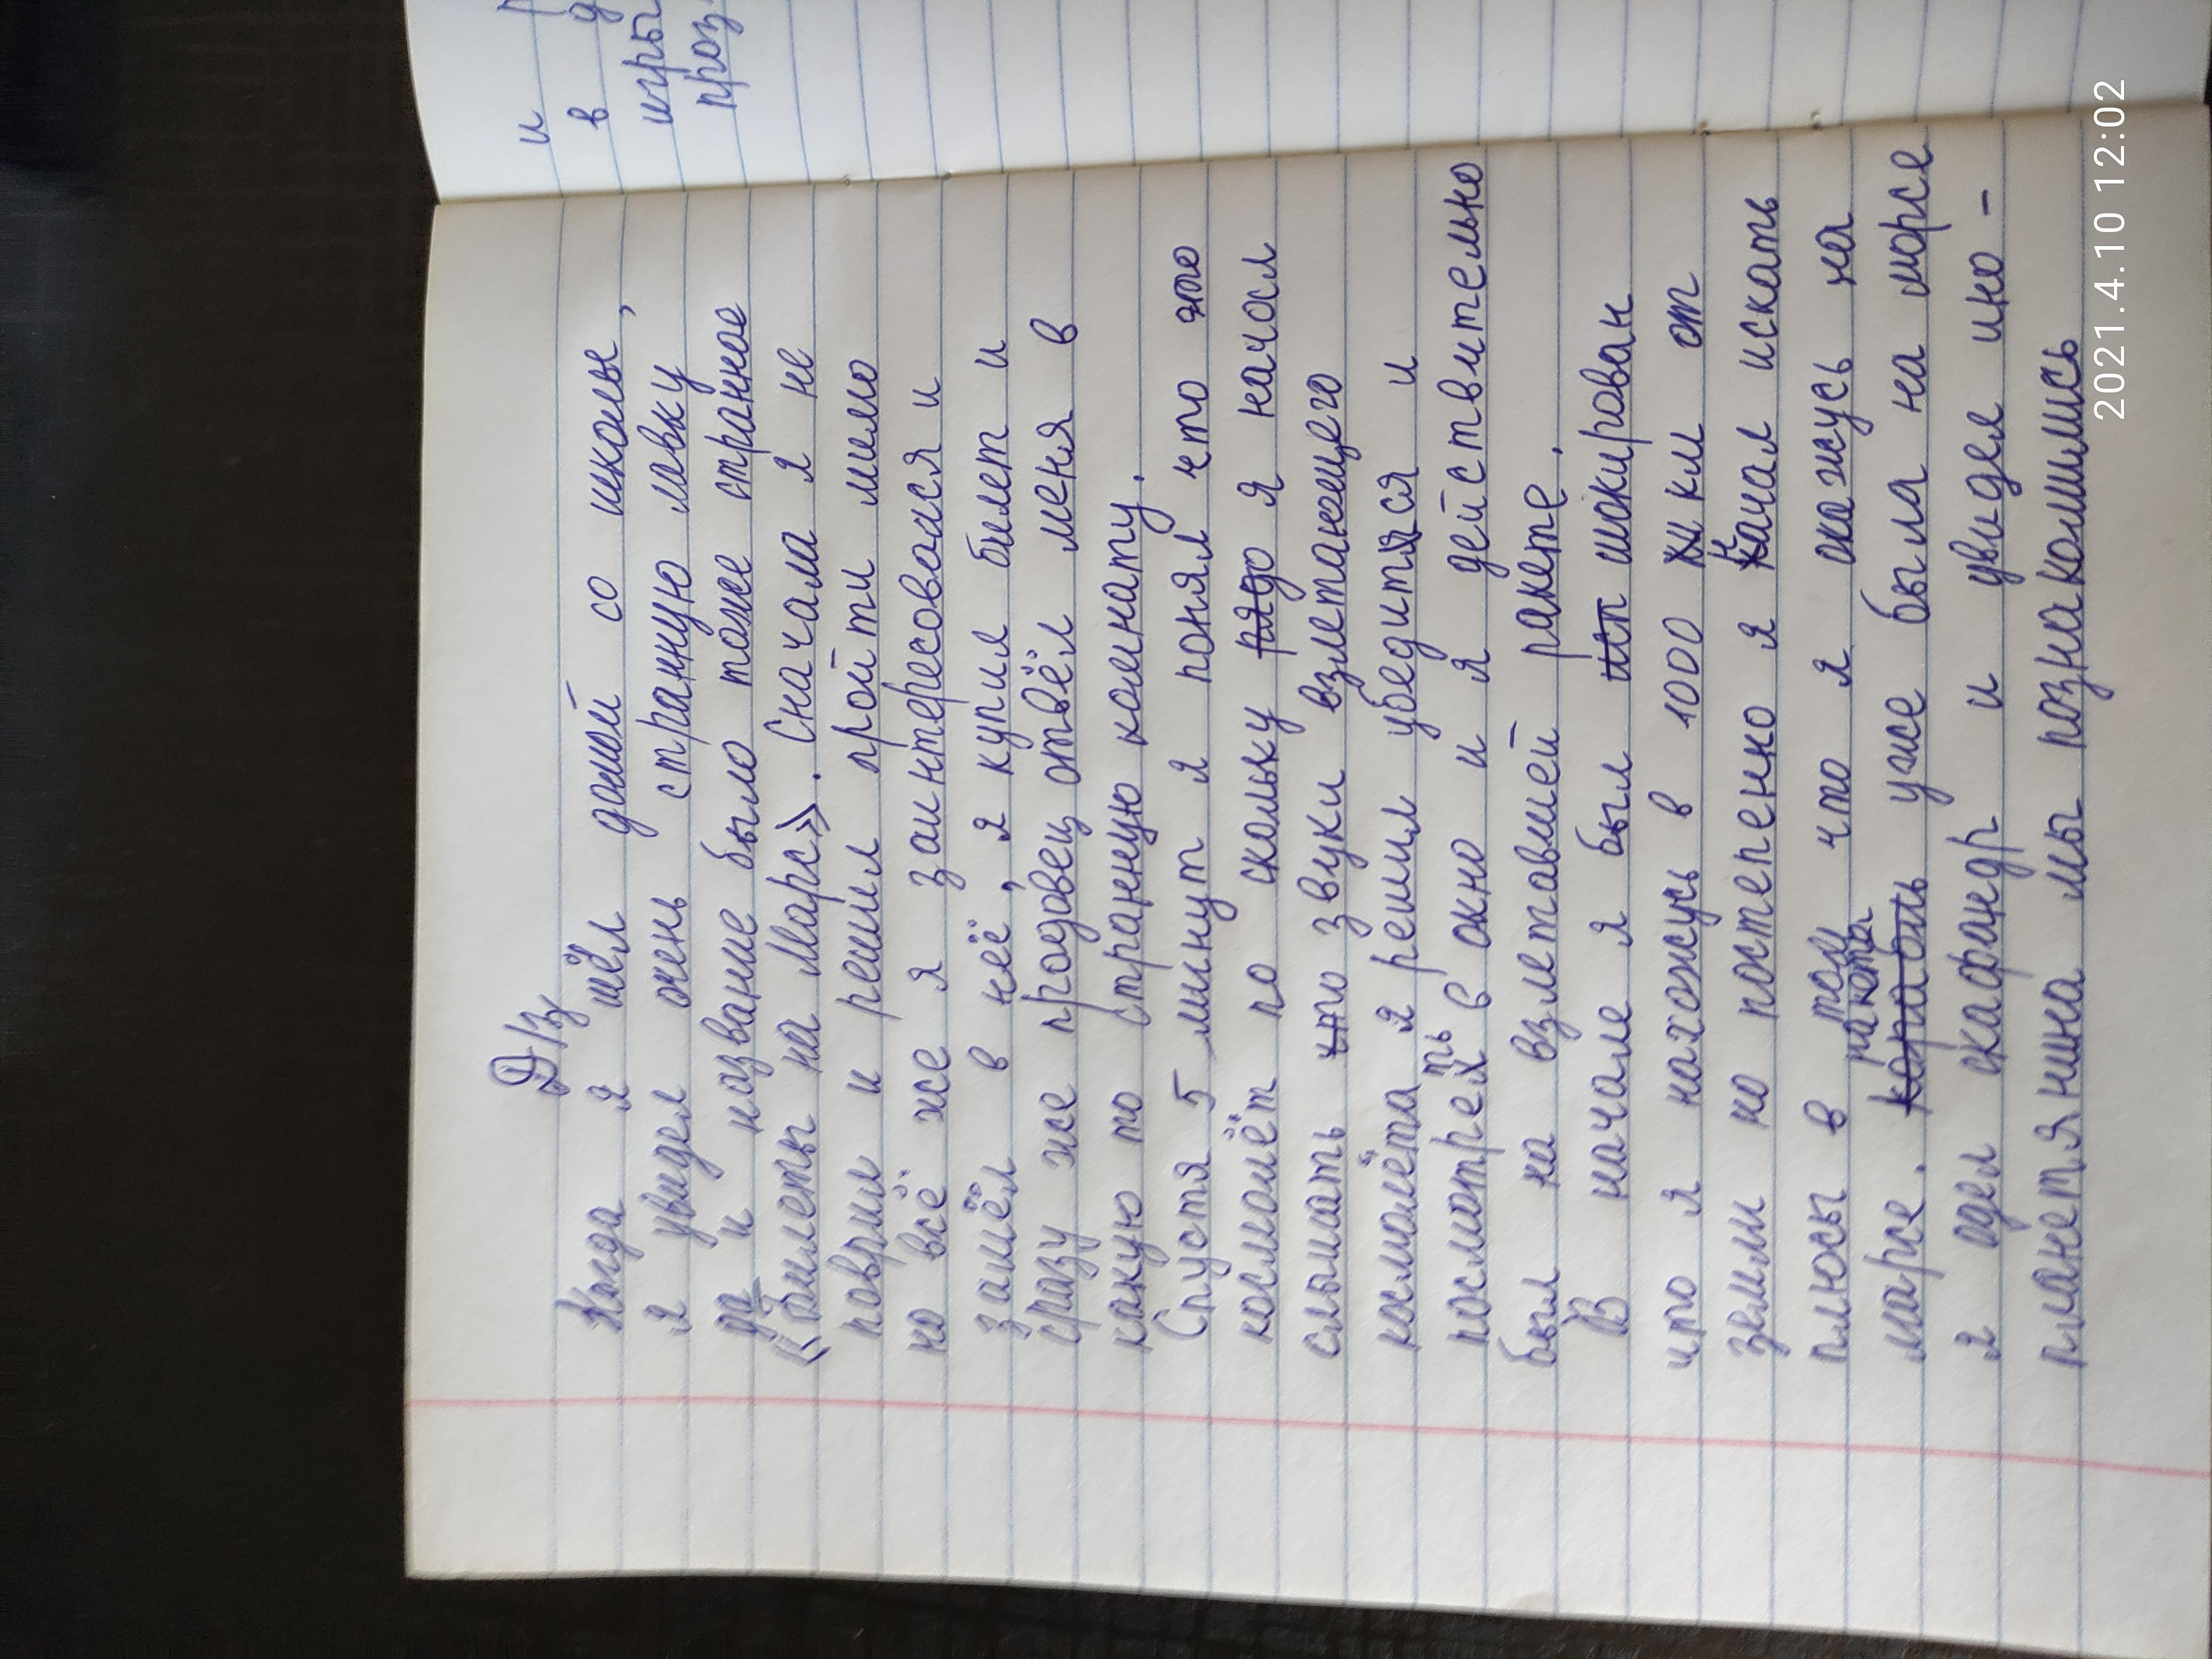 Д/з
Когда я шёл домой со школы,
я увидел очень странную лавку
да и название было тоже странное
«Билеты на Марс». Сначала я не
поврил и решил пройти мимо
но всё же я заинтересовался и
зашёл в неё, я купил билет и
сразу же продовец отвёл меня в
какую то странную комнату.
Спустя 5 минут я понял что это
космолёт по скольку я начал
слышать что звуки взлетающего
космолёта я решил убедится и
посмотреть в окно и я действительно
был на взлетавшей ракете.
В начале я был шокирован
что я нахожусь в 1000 км от
земли но постепенно я начал искать
плюсы в том что я окажусь на
марсе. ракета уже была на марсе
я одел скафандр и увидел ино-
планетянина мы познакомились
и
в
игры
проз
2021.4.10 12:02